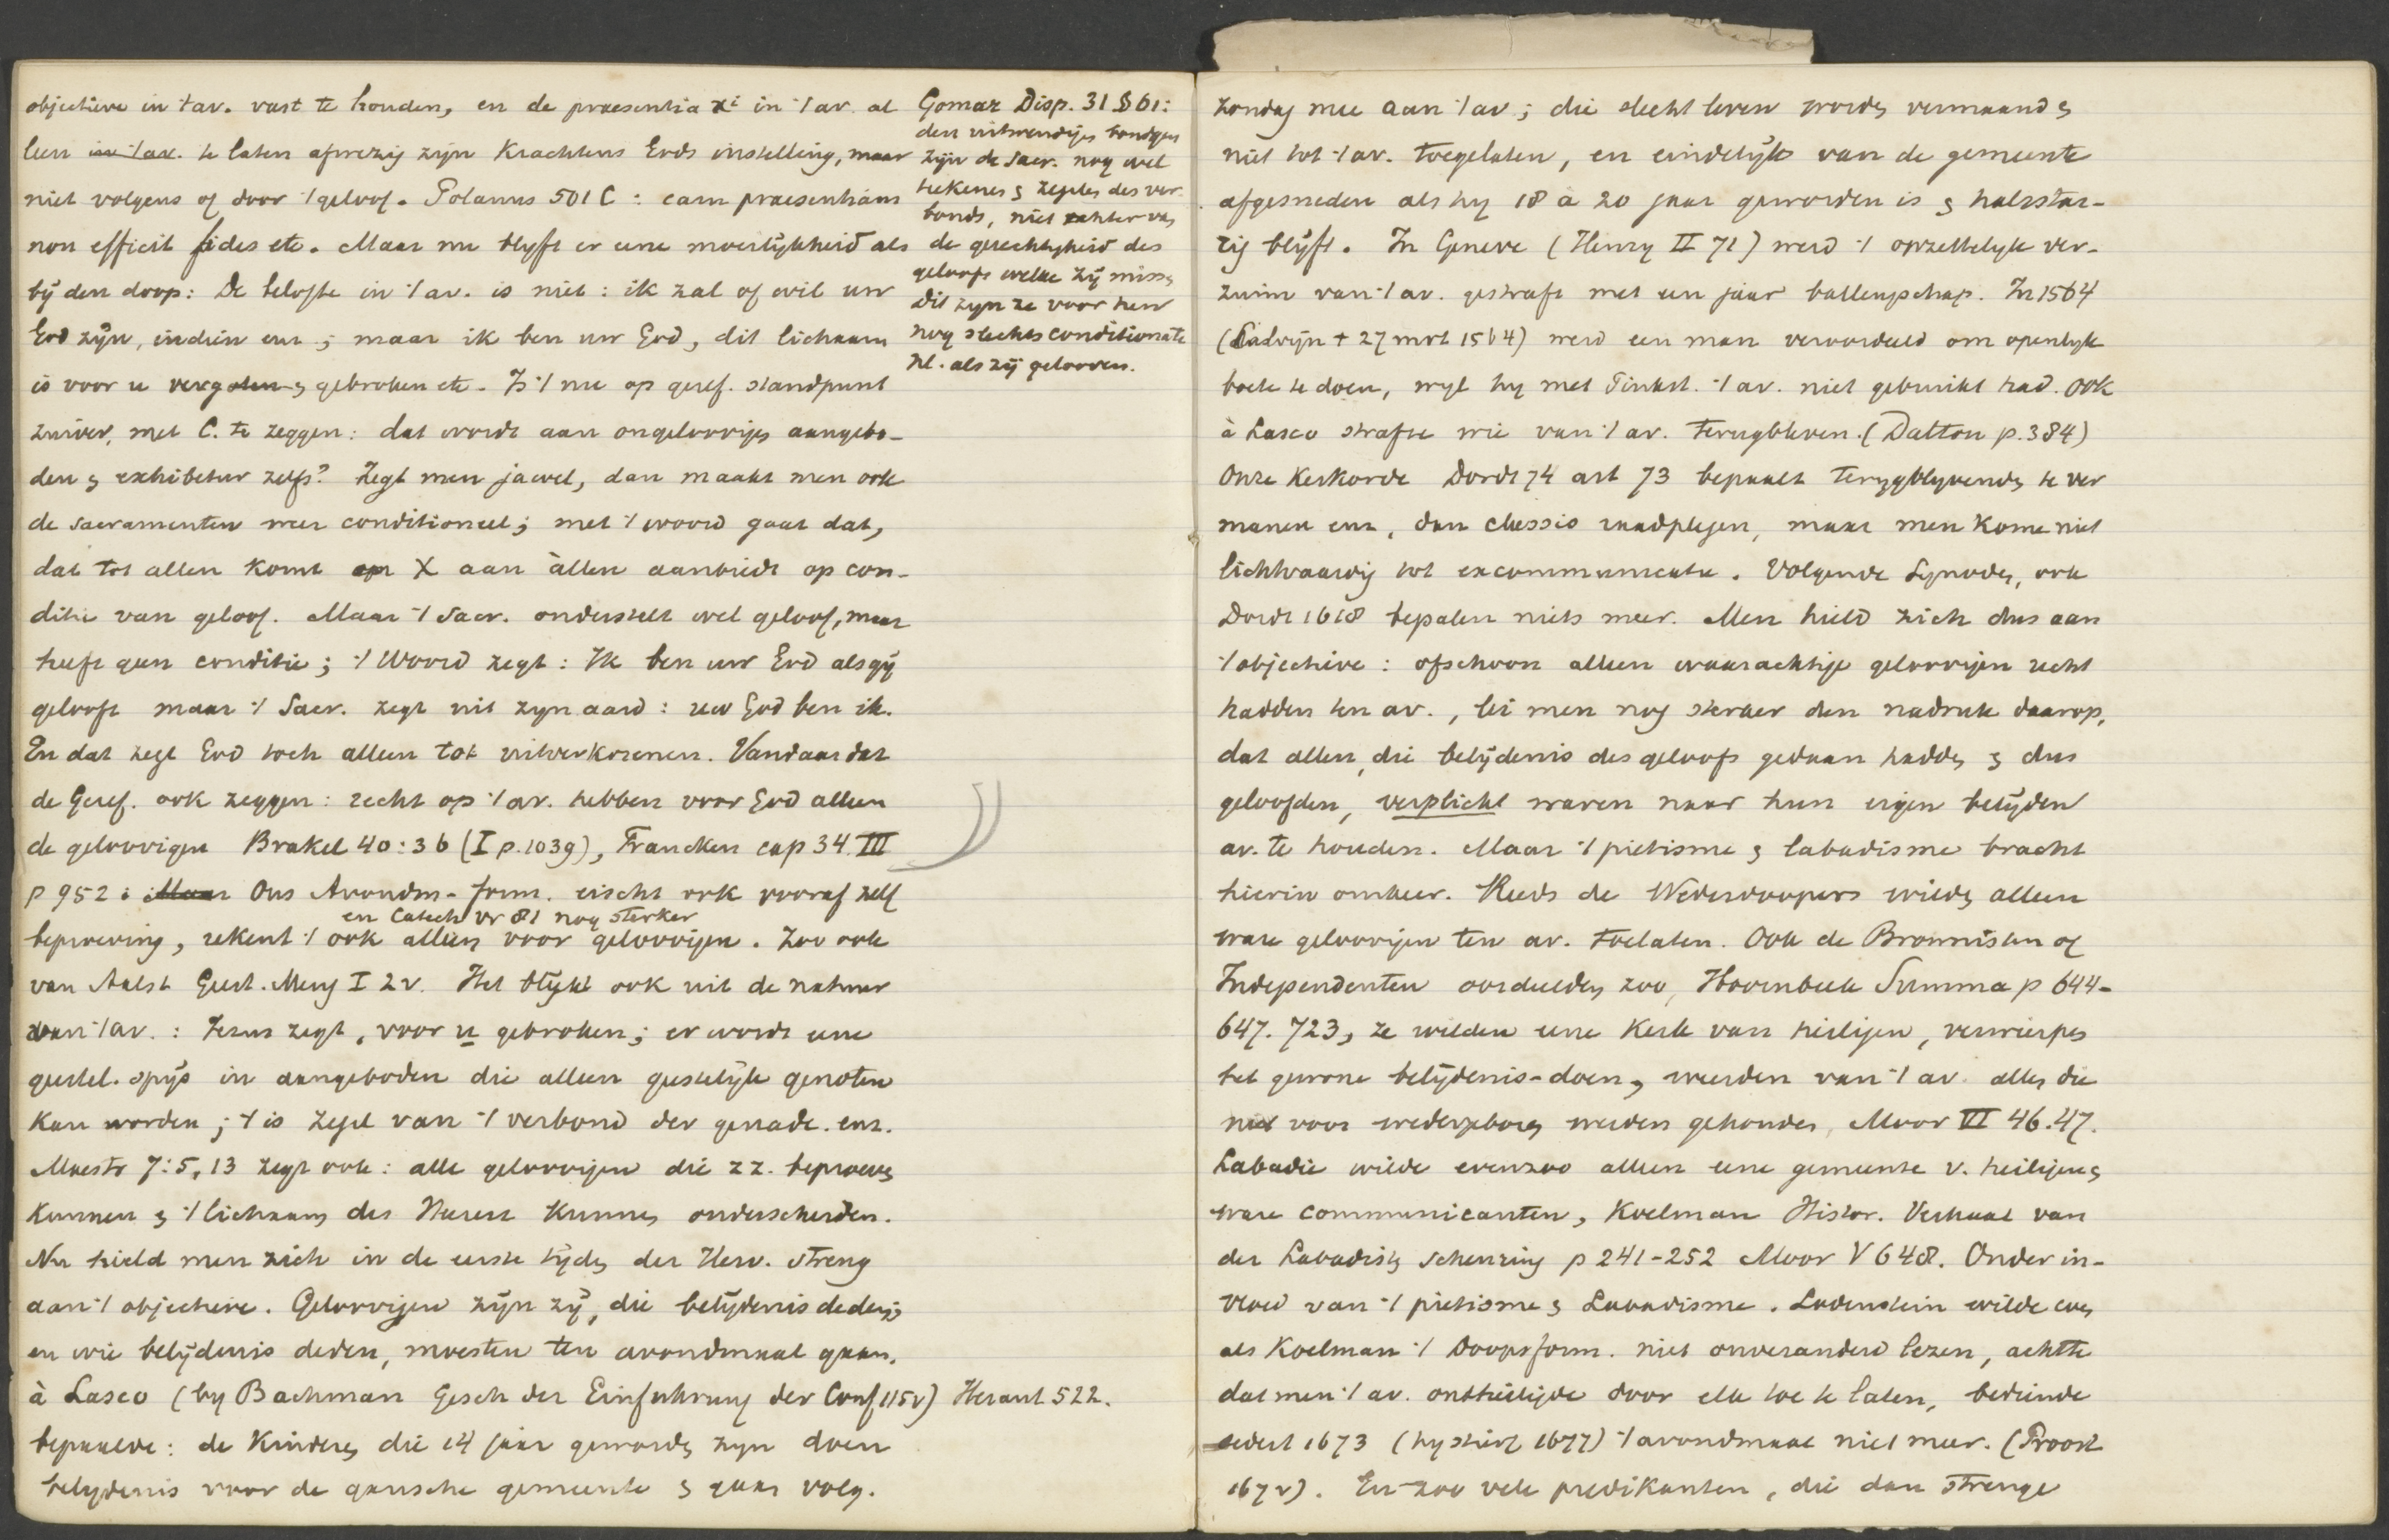 objectieve in 't av. vast te houden, en de praesentia Xi in 't av. al
leen in 't av. te laten afwezig zijn krachtens Gods instelling, maar
niet volgens of door 't geloof. Polanus 501 C: eam praesentiam
non efficit fides etc. Maar nu blyft er eene moeilijkheid als
bij den doop: De belofte in 't av. is niet: ik zal of wil uw
God zijn, indien enz; maar ik ben uw God, dit lichaam
is voor u vergoten & gebroken etc. Is 't nu op geref. standpunt
zuiver, met C. te zeggen: dat wordt aan ongeloovigen aangebo-
den & exhibetur zelfs? Zegt men jawel, dan maakt men ook
de sacramenten weer conditioneel; met 't woord gaat dat,
dat tot allen komt en X aan àllen aanbiedt op con-
ditie van geloof. Maar 't Sacr. onderstelt wel geloof, maar
heeft geen conditie; 't Woord zegt: Ik ben uw God als gij
gelooft maar 't Sacr. zegt uit zyn aard: uw God ben ik.
En dat zegt God toch alleen tot uitverkorenen. Vandaar dat
de Geref. ook zeggen: recht op 't av. hebben voor God alleen
de geloovigen Brakel 40:36 (I p. 1039), Francken cap 34. III
p 952: Maar Ons Avondm-form. eischt ook vooraf zelf
en Catech vr 81 nog sterker
beproeving, rekent 't ook alleen voor geloovigen. Zoo ook
van Aalst Geest. Meng I 2v. Het blijkt ook uit de natuur
van 't av.: Jezus zegt, voor u gebroken; er wordt eene
geestel. spijs in aangeboden die alleen geestelijk genoten
kan worden; 't is zegel van 't verbond der genade. enz.
Maestr 7:5, 13 zegt ook: alle geloovigen die zz. beproeven
kunnen & 't lichaam des Heeren kunnen onderscheiden.
Nu hield men zich in de eerste tijden der Herv. streng
aan 't objectieve. Geloovigen zijn zij, die belijdenis deden;
en wie belijdenis deden, moesten ten avondmaal gaan.
à Lasco (by Bachman Gesch der Einfuhrung der Conf 115v) Heraut 522.
bepaalde: de kinderen die 14 jaar geworden zyn doen
belydenis voor de gansche gemeente & gaan volg.
Gomar Disp. 31 § 61:
den uitwendigen bondgen
zijn de sacr. nog wel
teekenen & zegelen des ver-
bonds, niet echter van
de gerechtigheid des
geloofs welke zij missen
Dit zyn ze voor hen
nog slechts conditionate
nl. als zij gelooven.
Zondag mee aan 't av; die slecht leven worden vermaand &
niet tot 't av. toegelaten, en eindelijk van de gemeente
afgesneden als hy 18 a 20 jaar geworden is & halsstar-
rig blijft. In Geneve (Henry II 71) werd 't opzettelyk ver-
zuim van 't av. gestraft met een jaar ballingschap. In 1564
(Calvijn † 27 mrt 1564) werd een man veroordeeld om openlyk
boete te doen, wyl hy met Pinkst. 't av. niet gebruikt had. Ook
à Lasco strafte wie van 't av. terugbleven. (Dalton p. 384)
Onze Kerkorde Dordt 74 art 73 bepaalt terugblyvenden te ver
manen enz, dan classis raadplegen, maar men kome niet
lichtvaardig tot excommunicatie. Volgende Synoden, ook
Dordt 1618 bepalen niets meer. Men hield zich dus aan
't objectieve: ofschoon alleen waarachtige geloovigen recht
hadden ten av., lei men nog sterker den nadruk daarop,
dat allen, die belijdenis des geloofs gedaan hadden & dus
geloofden, verplicht waren naar hun eigen belijden
av. te houden. Maar 't pietisme & labadisme bracht
hierin omkeer. Reeds de Wederdoopers wilden alleen
ware geloovigen ten av. toelaten. Ook de Brownisten of
Independenten oordeelden zoo, Hoornbeek Summa p 644-
647. 723, ze wilden eene kerk van heiligen, verwierpen
het gewone belijdenis-doen, weerden van 't av. allen die
niet voor wedergeboren werden gehouden, Moor VI 46.47.
Labadie wilde evenzoo alleen eene gemeente v. heiligen &
ware communicanten, Koelman Histor. Verhaal van
der Labadisten scheuring p 241-252 Moor V 648. Onder in-
vloed van 't pietisme & Labadisme. Lodenstein wilde even
als Koelman 't Doopsform. niet onveranderd lezen, achtte
dat men 't av. ontheiligde door elk toe te laten, bediende
sedert 1673 (hy stierf 1677) 't avondmaal niet meer. (Proost
167v). En zoo vele predikanten, die dan strenge